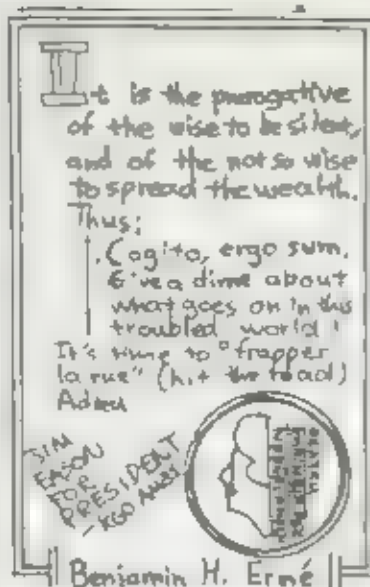 It is the purogative
of the wise to be silent,
and of the not so wise
to spread the wealth.
Thus:
Cogito, ergo sum.
Give a dime about
what goes on in this
troubled world!
It's time to "frapper
la rue" (hit the road)
Adieu
JIM
EASON
FOR
PRESIDENT
-KGO
Benjamin H. Erné